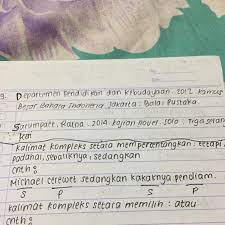 9. Departemen Pendidikan dan Kebudayaan. 2012. Kamus
Besar Bahasa Indonesia. Jakarta: Balai Pustaka.
Sarumpaet, Ratna. 2014. Kajian novel. Solo: Tiga serang
kai
Kalimat kompleks setara mempertentangkan: tetapi,
padahal, sebaliknya, sedangkan
cnth:
Michael cerewet sedangkan kakaknya pendiam.
S P S P
Kalimat kompleks setara memilih: atau
cnth: